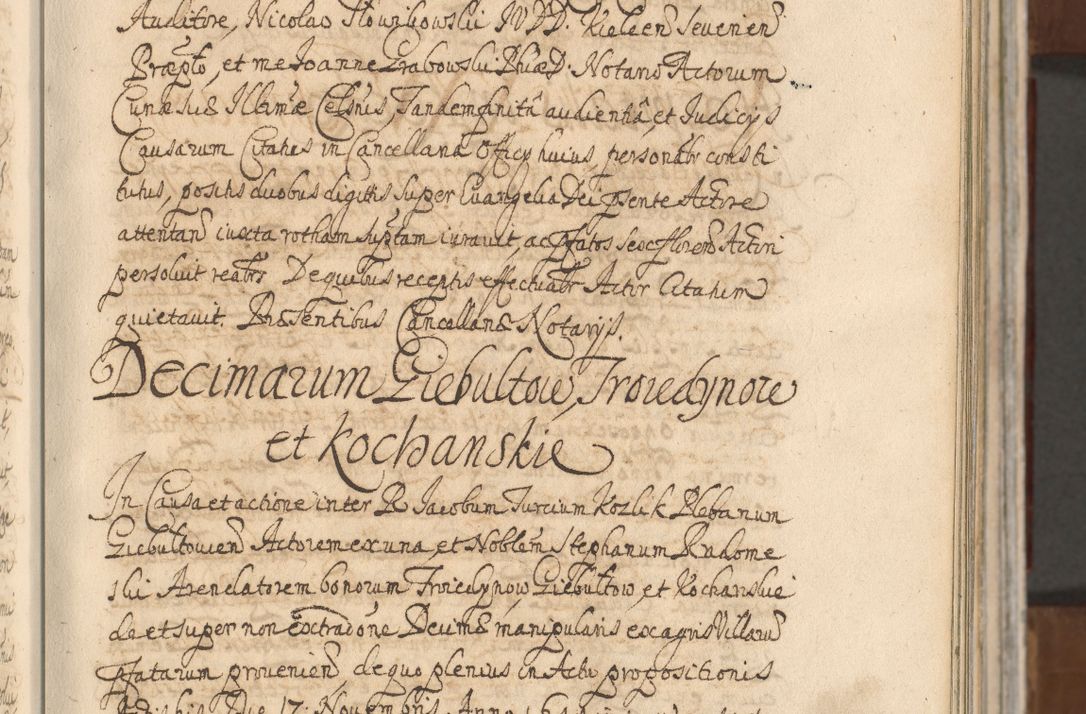 Auditore, Nicolao Słowikowski JVDD. Kielcen Sevenien
Præpto, et me Joanne Grabowski Phiæ D. Notario Actorum
Curiæ suæ Illmæ Celsnis, Tandem finita audientia, et Judicijs
Causarum Citatus in Cancellaria Officij huius, personalr consti
tutus, positis duobus digitis super Euangelia Dei psente Actore
attentan iuxta rotham suptam iurauit, ac pfatos sex floren Actori
persoluit realtr De quibus receptis effectualtr Actor Citatum
quietauit. Præsentibus Cancellariæ Notarijs.
Decimarum Giebultow, Troiedynow
et Kochanskie
In Causa et actione inter R Jacobum Turcium Kozlik Plebanum
Giebultouien Actorem ex una, et Noblem Stephanum Radome
ski Arendatorem bonorum Troiedynow, Giebultow, et Kochanskie
de et super non extradone Decimæ manipularis ex agris Villarum
pfatarum prouenien de quo plenius in Actu propositionis
Die 17 Nouembris Anno